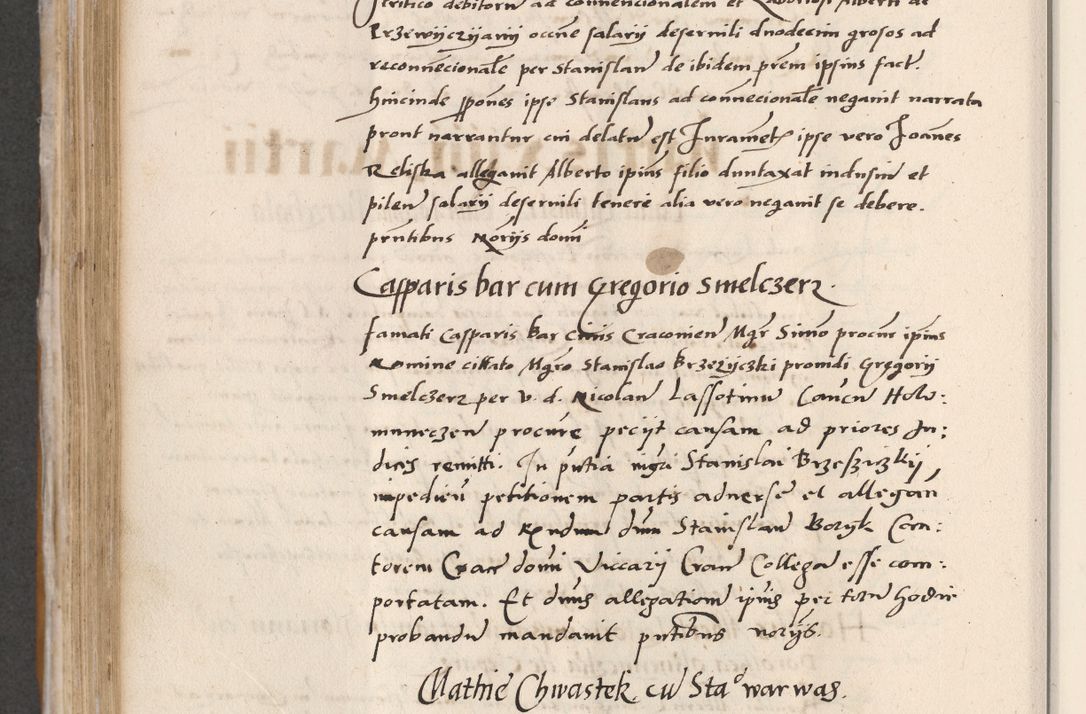 tritico debitoru ad convencionalem et Laboriosi Alberti de
Krzewijczijanij occne salarij deserviti duodecim grosos ad
reconnecionale per Stanislau de ibidem prem ipsius fact.
hincinde ppones ipse Stanislaus ad connecionale negavit narrata
prout narrantur cui delatu est Jurament ipse vero Joannes
Reliska allegavit Alberto ipius filio duntaxat indusiu et
pileu salarij deserviti tenere alia vero negavit se debere.
pruntibus Noriis domi
Casparis bar cum Gregorio Smelczerz.
famati Casparis Bar Civis Cracovien Mgr Simo procur ipius
Nomine cittato Mgro Stanislao Brzezijczki providi Gregorij
Smelczerz per v. d. Nicolau Lassotinu Cancu Holo:
muneczen procure peciit causam ad priores Ju:
dices remitti. In pntia mgri Stanislai Brzeszczkij,
impedien petitionem partis adverse et allegan
causam ad Rndum dnm Stanislau Borijk Can:
torem Cracr domi Viccarij Gran Collega esse com:
portatam. Et dnus allegationi ipius per totu hodie
probandu mandavit pntibus norijs.
Mathie Chwastek cu Stao warwas.